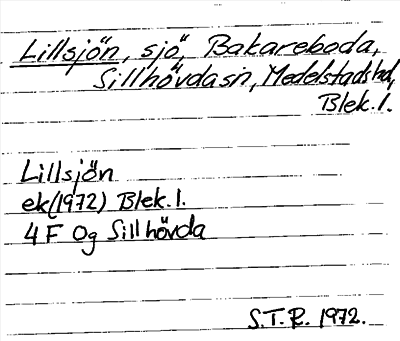 Lillsjön, sjö, Bakareboda,
Sillhövda sn, Medelstads hd,
Blek. l.
Lillsjön
ek(1972) Blek. l.
4 F 0g Sillhövda
S.T.R. 1972.